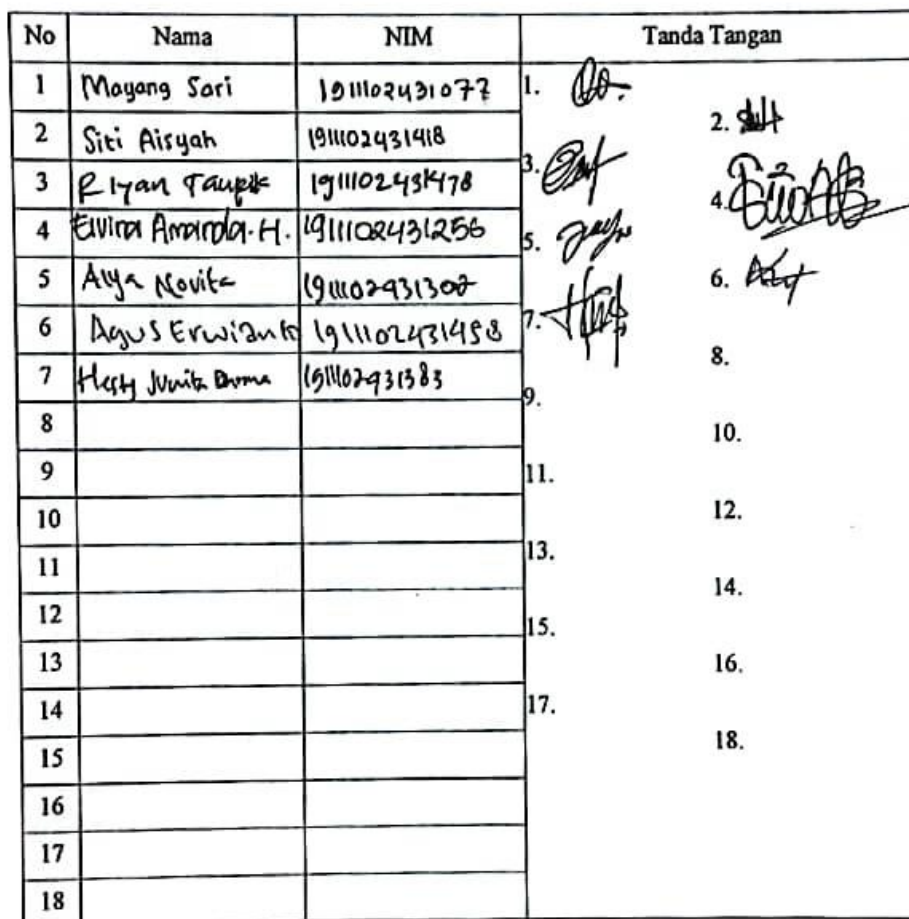 No Nama NIM Tanda Tangan
1 Mayang Sari 1911102431077 1.
2 Siti Aisyah 1911102431418 2.
3 Riyan Taupik 1911102431478 3.
4 Elvira Amanda.H. 1911102431256 4.
5 Alya Novita 1911102431302 5.
6 Agus Erwianto 1911102431458 6.
7 Hesty Junita 1911102431383 7.
8 8.
9 9.
10 10.
11 11.
12 12.
13 13.
14 14.
15 15.
16 16.
17 17.
18 18.